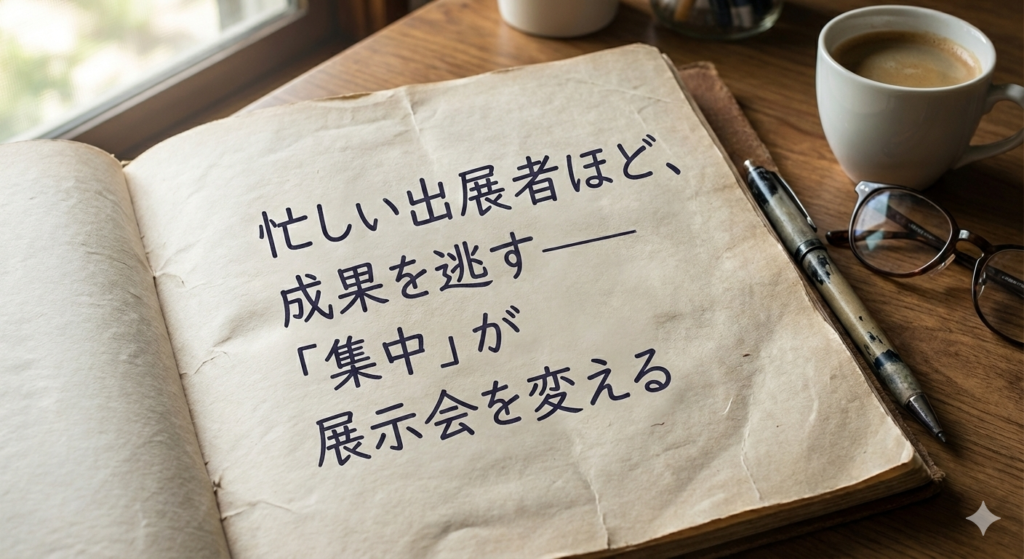 忙しい出展者ほど、
成果を逃す──
「集中」が
展示会を変える